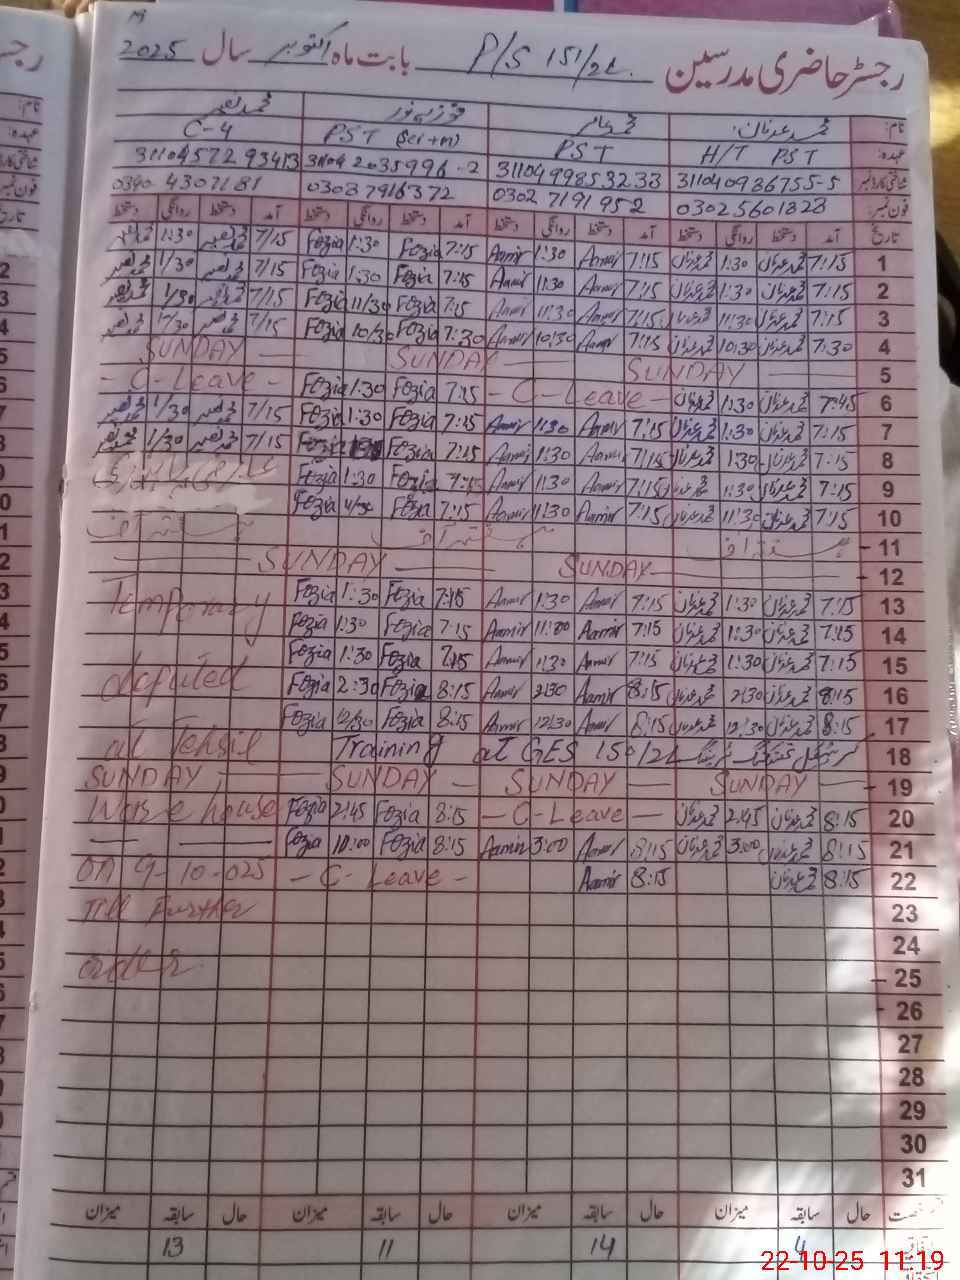 رجسٹر حاضری مدرسین P/S 151/2L بابت ماہ اکتوبر سال 2025
نام: محمد عدنان محمد عامر فوزیہ نور محمد نعیم
عہدہ: H/T PST PST PST (Sci+m) C-4
شناختی کارڈ نمبر 311040986755-5 3110499853233 31104 2035996-2 3110457293413
فون نمبر: 03025601323 0302 7191952 03037916372 0340 4307181
تاریخ آمد دستخط روانگی دستخط آمد دستخط روانگی دستخط آمد دستخط روانگی دستخط آمد دستخط روانگی دستخط
1 7:15 محمد عدنان 1:30 محمد عدنان 7:15 Aamir 1:30 Aamir 7:15 Fozia 1:30 Fozia 7/15 محمد نعیم 1:30 محمد نعیم
2 7:15 محمد عدنان 1:30 محمد عدنان 7:15 Aamir 11:30 Aamir 7:15 Fozia 1:30 Fozia 7/15 محمد نعیم 1/30 محمد نعیم
3 7:15 محمد عدنان 11:30 محمد عدنان 7:15 Aamir 11:30 Aamir 7:15 Fozia 11/30 Fozia 7/15 محمد نعیم 1/30 محمد نعیم
4 7:30 محمد عدنان 10:30 محمد عدنان 7:15 Aamir 10:30 Aamir 7:30 Fozia 10/30 Fozia 7/15 محمد نعیم محمد نعیم
5 SUNDAY SUNDAY SUNDAY
6 7:45 محمد عدنان 1:30 محمد عدنان - C-Leave - 7:15 Fozia 1:30 Fozia - C-Leave -
7 7:15 محمد عدنان 1:30 محمد عدنان 7:15 Aamir 11:30 Aamir 7:15 Fozia 1:30 Fozia 7/15 محمد نعیم 1/30 محمد نعیم
8 7:15 محمد عدنان 1:30 محمد عدنان 7:15 Aamir 1:30 Aamir 7:15 Fozia Fozia 7/15 محمد نعیم 1/30 محمد نعیم
9 7:15 محمد عدنان 1:30 محمد عدنان 7:15 Aamir 11:30 Aamir 7:15 Fozia 1:30 Fozia
10 7:15 محمد عدنان 11:30 محمد عدنان 7:15 Aamir 11:30 Aamir 7:15 Fozia Fozia
11
12 SUNDAY SUNDAY
13 7:15 محمد عدنان 1:30 محمد عدنان 7:15 Aamir 1:30 Aamir 7:15 Fozia 1:30 Fozia Temporary
14 7:15 محمد عدنان 1:30 محمد عدنان 7:15 Aamir Aamir 7:15 Fozia 1:30 Fozia
15 7:15 محمد عدنان 1:30 محمد عدنان 7:15 Aamir 11:30 Aamir 7:15 Fozia 1:30 Fozia deputed
16 8:15 محمد عدنان 2:30 محمد عدنان 8:15 Aamir 2:30 Aamir 8:15 Fozia 2:30 Fozia
17 8:15 محمد عدنان 12:30 محمد عدنان 8:15 Aamir 12:30 Aamir 8:15 Fozia 12/30 Fozia
18 at Tehsil Training at GES 150/2L
19 SUNDAY SUNDAY SUNDAY SUNDAY
20 8:15 محمد عدنان 2:45 محمد عدنان - C-Leave - 8:15 Fozia 2:45 Fozia Ware house
21 8:15 محمد عدنان 3:00 محمد عدنان 8:15 Aamir 3:00 Aamir 8:15 Fozia Fozia
22 8:15 محمد عدنان 8:15 Aamir - C- Leave - on 9-10-025
23 Till Further
24
25 order
26
27
28
29
30
31
رخصت حال سابقہ میزان حال سابقہ میزان حال سابقہ میزان حال سابقہ میزان
اتفاقیہ 4 14 11 13
22-10-25 11:19